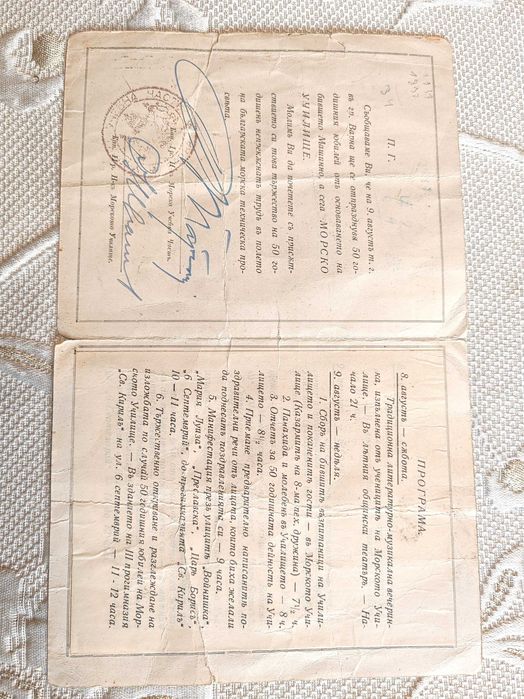 П. Г.
Съобщаваме Ви, че на 9. августъ т. г.
въ гр. Варна ще се отпразднува 50 го-
дишния юбилей отъ основаването на
бившето Машинно, а сега МОРСКО
УЧИЛИЩЕ.
Молимъ Ви да почетете съ присѫт-
ствието си това тържество на 50 го-
дишенъ неуреклонатъ трудъ въ полето
на българската морска техническа про-
свѣта.
Ком. Др. Нач. Морска Учебна Часть.
Ком. Др. Нач. Морското Училище.
ПРОГРАМА.
8. августъ — сѫбота.
Традиционна литературно-музикална вечерин-
ка, изпълнена отъ учениците на Морското Учи-
лище. — Въ лѣтния общински театъръ. На-
чало 21 ч.
9. августъ — недѣля.
1. Сборъ на бившитѣ възпитаници на Учили-
лището и поканенитѣ гости — въ Морското Учи-
лище (Казармитѣ на 8-ма пех. дружина) — 7½ ч.
2. Панахида и молебенъ въ Училището — 8 ч.
3. Отчетъ за 50 годишната дейность на Учи-
лището — 8½ часа.
4. Приемане предварително написанитѣ по-
здравителни речи отъ лицата, които биха желали
да поднесатъ поздравленията си — 9 часа.
5. Манифестация презъ улицитѣ „Войнишка“,
„Мария Луиза“, „Преславска“, „Царь Борисъ“,
„6 Септемврий“, до прогимназията „Св. Кирилъ“
10 — 11 часа.
6. Тържествено откриване и разглеждане на
изложбата по случай 50 годишния юбилей на Мор-
ското Училище. — Въ зданието на III прогимназия
„Св. Кирилъ“ на ул. 6 септемврий — 11 - 12 часа.